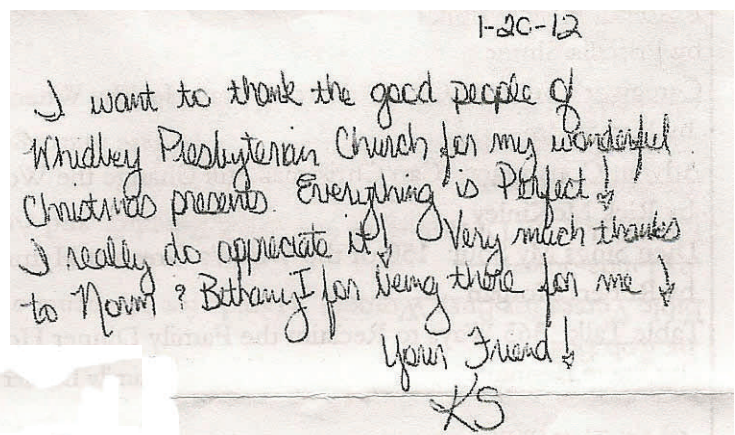 1-20-12
I want to thank the good people of
Whidbey Presbyterian Church for my wonderful
Christmas presents. Everything is Perfect!
I really do appreciate it! Very much thanks
to Norm & Bethany for being there for me!
Your Friend!
KS